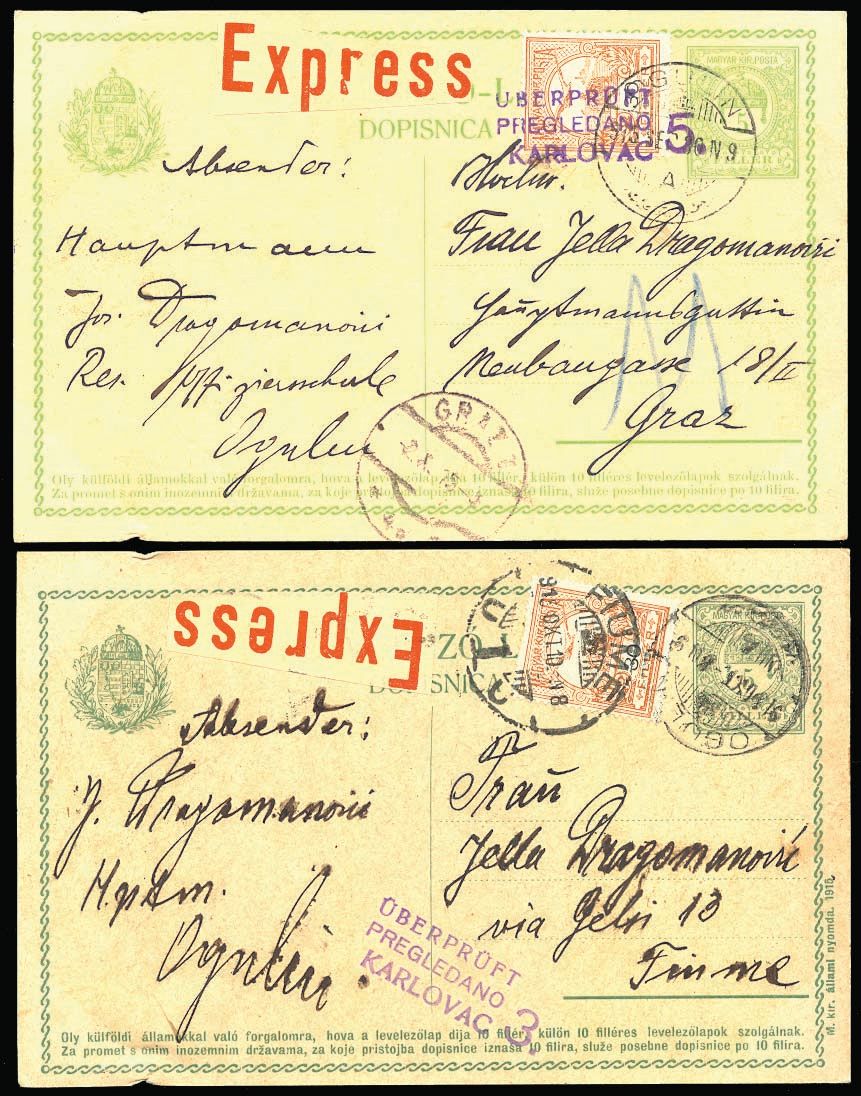 Express
DOPISNICA
MAGYAR KIR. POSTA
ÜBERPRÜFT
PREGLEDANO
KARLOVAC 5.
Absender:
Hauptmann
Jos. Dragomanović
Res. Offiziersschule
Ogulin
Hochw.
Frau Jella Dragomanović
Hauptmannsgattin
Neubaugasse 18/II
Graz
GRAZ
Oly külföldi államokkal való forgalomra, hova a levelezőlap díja 10 fillér, külön 10 filléres levelezőlapok szolgálnak.
Za promet s onim inozemnim državama, za koje pristojba dopisnice iznaša 10 filira, služe posebne dopisnice po 10 filira.
Express
DOPISNICA
MAGYAR KIR. POSTA
FIUME
Absender:
J. Dragomanović
Hptm.
Ogulin.
Frau
Jella Dragomanović
via Gelsi 13
Fiume
ÜBERPRÜFT
PREGLEDANO
KARLOVAC 3.
Oly külföldi államokkal való forgalomra, hova a levelezőlap díja 10 fillér, külön 10 filléres levelezőlapok szolgálnak.
Za promet s onim inozemnim državama, za koje pristojba dopisnice iznaša 10 filira, služe posebne dopisnice po 10 filira.
M. kir. állami nyomda. 1915.